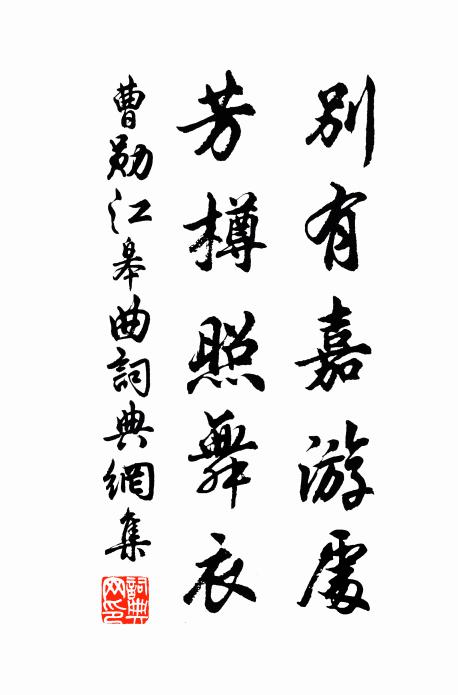 別有嘉游處
芳樽照舞衣
曹勛江皋曲詞典網集
詞典网印